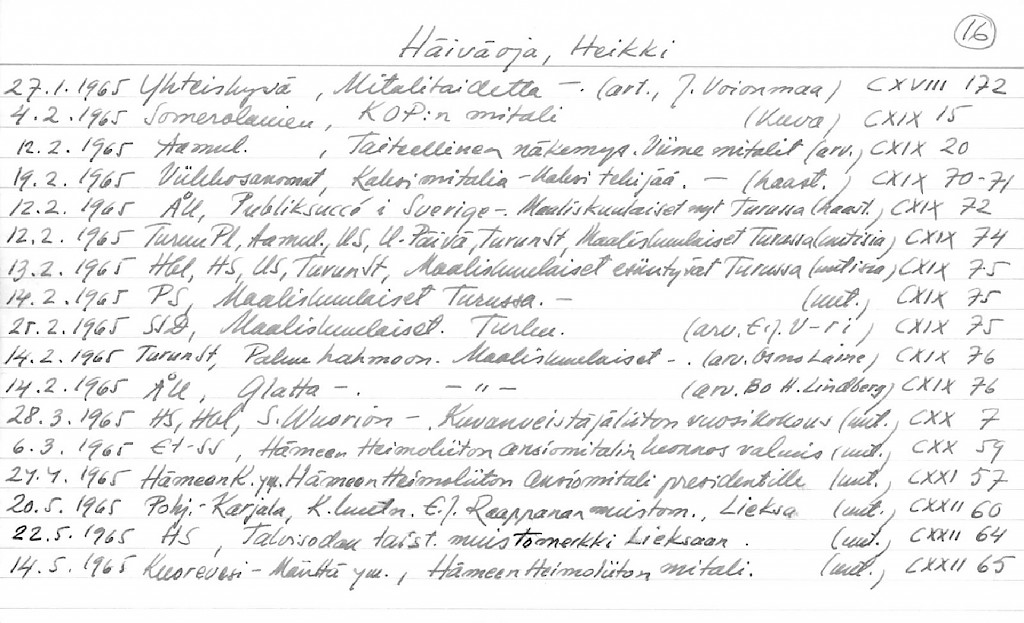 16
Häiväoja, Heikki
27.1.1965 Yhteishyvä, Mitalitaidetta -. (art., J. Voionmaa) CXVIII 172
4.2.1965 Somerolainen, KOP:n mitali (kuva) CXIX 15
12.2.1965 Aamul., Taiteellinen näkemys. Viime mitalit (arv.) CXIX 20
19.2.1965 Viikkosanomat, Kaksi mitalia - kaksi tekijää. - (haast.) CXIX 70-71
12.2.1965 ÅU, Publiksuccé i Sverige -. Maaliskuulaiset nyt Turussa (haast.) CXIX 72
12.2.1965 TurunPl, Aamul., US, U-Päivä, TurunSt, Maaliskuulaiset Turussa (uutisia) CXIX 74
13.2.1965 Hbl, HS, US, TurunSt, Maaliskuulaiset esiintyvät Turussa (uutisia) CXIX 75
14.2.1965 PS, Maaliskuulaiset Turussa. - (uut.) CXIX 75
25.2.1965 SSD, Maaliskuulaiset. Turku. (arv. E.J. V-ri) CXIX 75
14.2.1965 TurunSt, Paluu hahmoon. Maaliskuulaiset -. (arv. Osmo Laine) CXIX 76
14.2.1965 ÅU, Glatta -. - " - (arv. Bo H. Lindberg) CXIX 76
28.3.1965 HS, Hbl, S. Wuorion -. Kuvanveistäjäliiton vuosikokous (uut.) CXX 7
6.3.1965 Et-SS, Hämeen Heimoliiton ansiomitalin luonnos valmis (uut.) CXX 59
27.4.1965 HämeenK. ym. Hämeen Heimoliiton ansiomitali presidentille (uut.) CXXI 57
20.5.1965 Pohj.-Karjala, K. luutn. E.J. Raappanan muistom., Lieksa (uut.) CXXII 60
22.5.1965 HS, Talvisodan taist. muistomerkki Lieksaan. (uut.) CXXII 64
14.5.1965 Kuorevesi-Mänttä ym., Hämeen Heimoliiton mitali. (uut.) CXXII 65